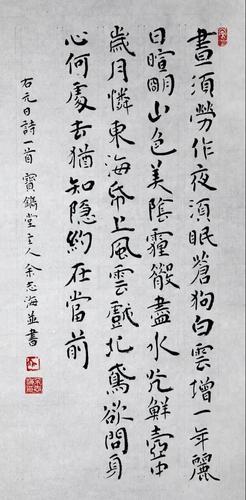 晝須勞作夜須眠蒼狗白雲增一年麗
日暄朙山色美陰霾散盡水光鮮壺中
歲月憐東海帋上風雲戲北鳶欲問身
心何處去猶知隐約在當前
右元日詩一首寶堂主人余志海並書